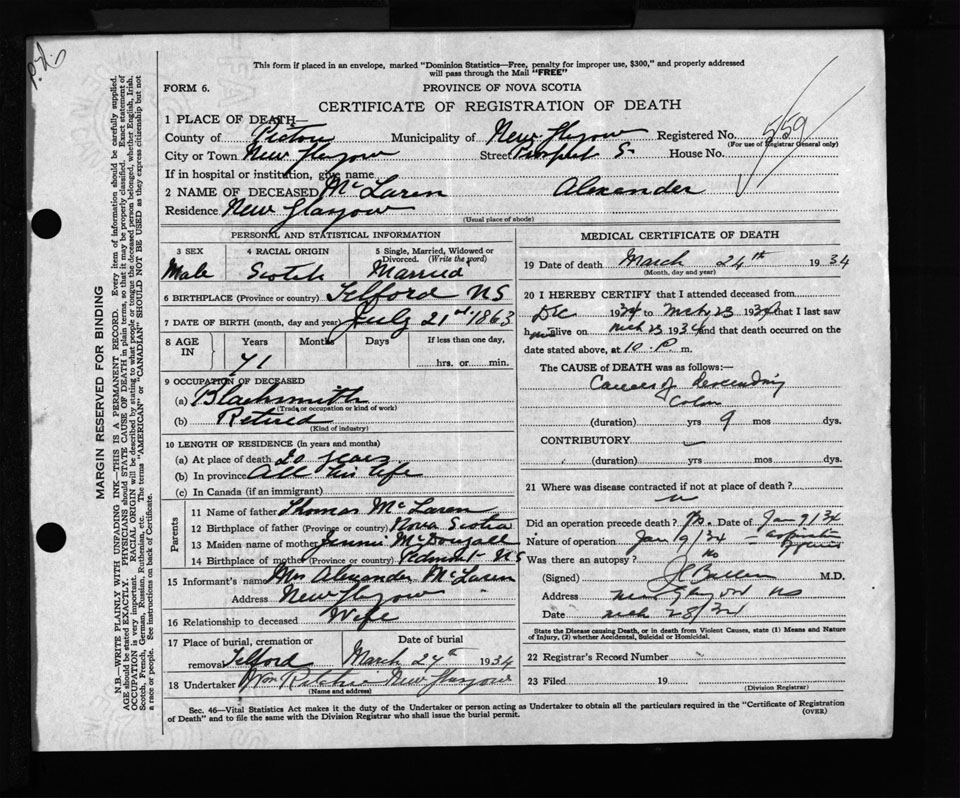 This form if placed in an envelope, marked "Dominion Statistics—Free, penalty for improper use, $300," and properly addressed
will pass through the Mail "FREE"
FORM 6.
PROVINCE OF NOVA SCOTIA
CERTIFICATE OF REGISTRATION OF DEATH
1 PLACE OF DEATH—
County of Pictou Municipality of New Glasgow Registered No. 559
(For use of Registrar General only)
City or Town New Glasgow Street Temperance St. House No.
If in hospital or institution, give name
2 NAME OF DECEASED McLaren Alexander
Residence New Glasgow
(Usual place of abode)
PERSONAL AND STATISTICAL INFORMATION
3 SEX 4 RACIAL ORIGIN 5 Single, Married, Widowed or
Divorced. (Write the word)
Male Scotch Married
6 BIRTHPLACE (Province or country) Telford NS
7 DATE OF BIRTH (month, day and year) July 21st 1863
8 AGE IN Years Months Days If less than one day,
71 hrs. or min.
9 OCCUPATION OF DECEASED
(a) Blacksmith
(Trade or occupation or kind of work)
(b) Retired
(Kind of industry)
10 LENGTH OF RESIDENCE (in years and months)
(a) At place of death 20 years
(b) In province All his life
(c) In Canada (if an immigrant)
Parents
11 Name of father Thomas McLaren
12 Birthplace of father (Province or country) Nova Scotia
13 Maiden name of mother Jennie McDougall
14 Birthplace of mother (Province or country) Pidmont NS
15 Informant's name Mrs Alexander McLaren
Address New Glasgow "
16 Relationship to deceased Wife
17 Place of burial, cremation or Date of burial
removal Telford March 27th 1934
18 Undertaker Wm Ritchie New Glasgow
(Name and address)
MEDICAL CERTIFICATE OF DEATH
19 Date of death March 24th 1934
(Month, day and year)
20 I HEREBY CERTIFY that I attended deceased from
Dec 1934 to Mch 23 1934 that I last saw
him alive on Mch 23 1934 and that death occurred on the
date stated above, at 10 P. m.
The CAUSE OF DEATH was as follows:—
Cancer of descending
Colon
(duration) yrs 9 mos dys.
CONTRIBUTORY —
(duration) yrs mos dys.
21 Where was disease contracted if not at place of death?
Did an operation precede death? Yes. Date of Jan 9/34
Nature of operation Jan 9/34
Was there an autopsy? No
(Signed) M.D.
Address New Glasgow NS
Date Mch 28/34
State the Disease causing Death, or in death from Violent Causes, state (1) Means and Nature
of Injury, (2) whether Accidental, Suicidal or Homicidal.
22 Registrar's Record Number
23 Filed 19
(Division Registrar)
Sec. 46—Vital Statistics Act makes it the duty of the Undertaker or person acting as Undertaker to obtain all the particulars required in the "Certificate of Registration
of Death" and to file the same with the Division Registrar who shall issue the burial permit.
(OVER)
MARGIN RESERVED FOR BINDING
N.B.—WRITE PLAINLY WITH UNFADING INK—THIS IS A PERMANENT RECORD. Every item of information should be carefully supplied.
AGE should be stated EXACTLY. PHYSICIANS should STATE CAUSE OF DEATH in plain terms, so that it may be properly classified. Exact statement of
OCCUPATION is very important. RACIAL ORIGIN will be described by stating to what people or tongue the deceased person belonged, whether English, Irish,
Scotch, French, German, Russian, Ruthenian, etc. The terms "AMERICAN" or "CANADIAN" SHOULD NOT BE USED as they express citizenship but not
a race or people. See instructions on back of Certificate.